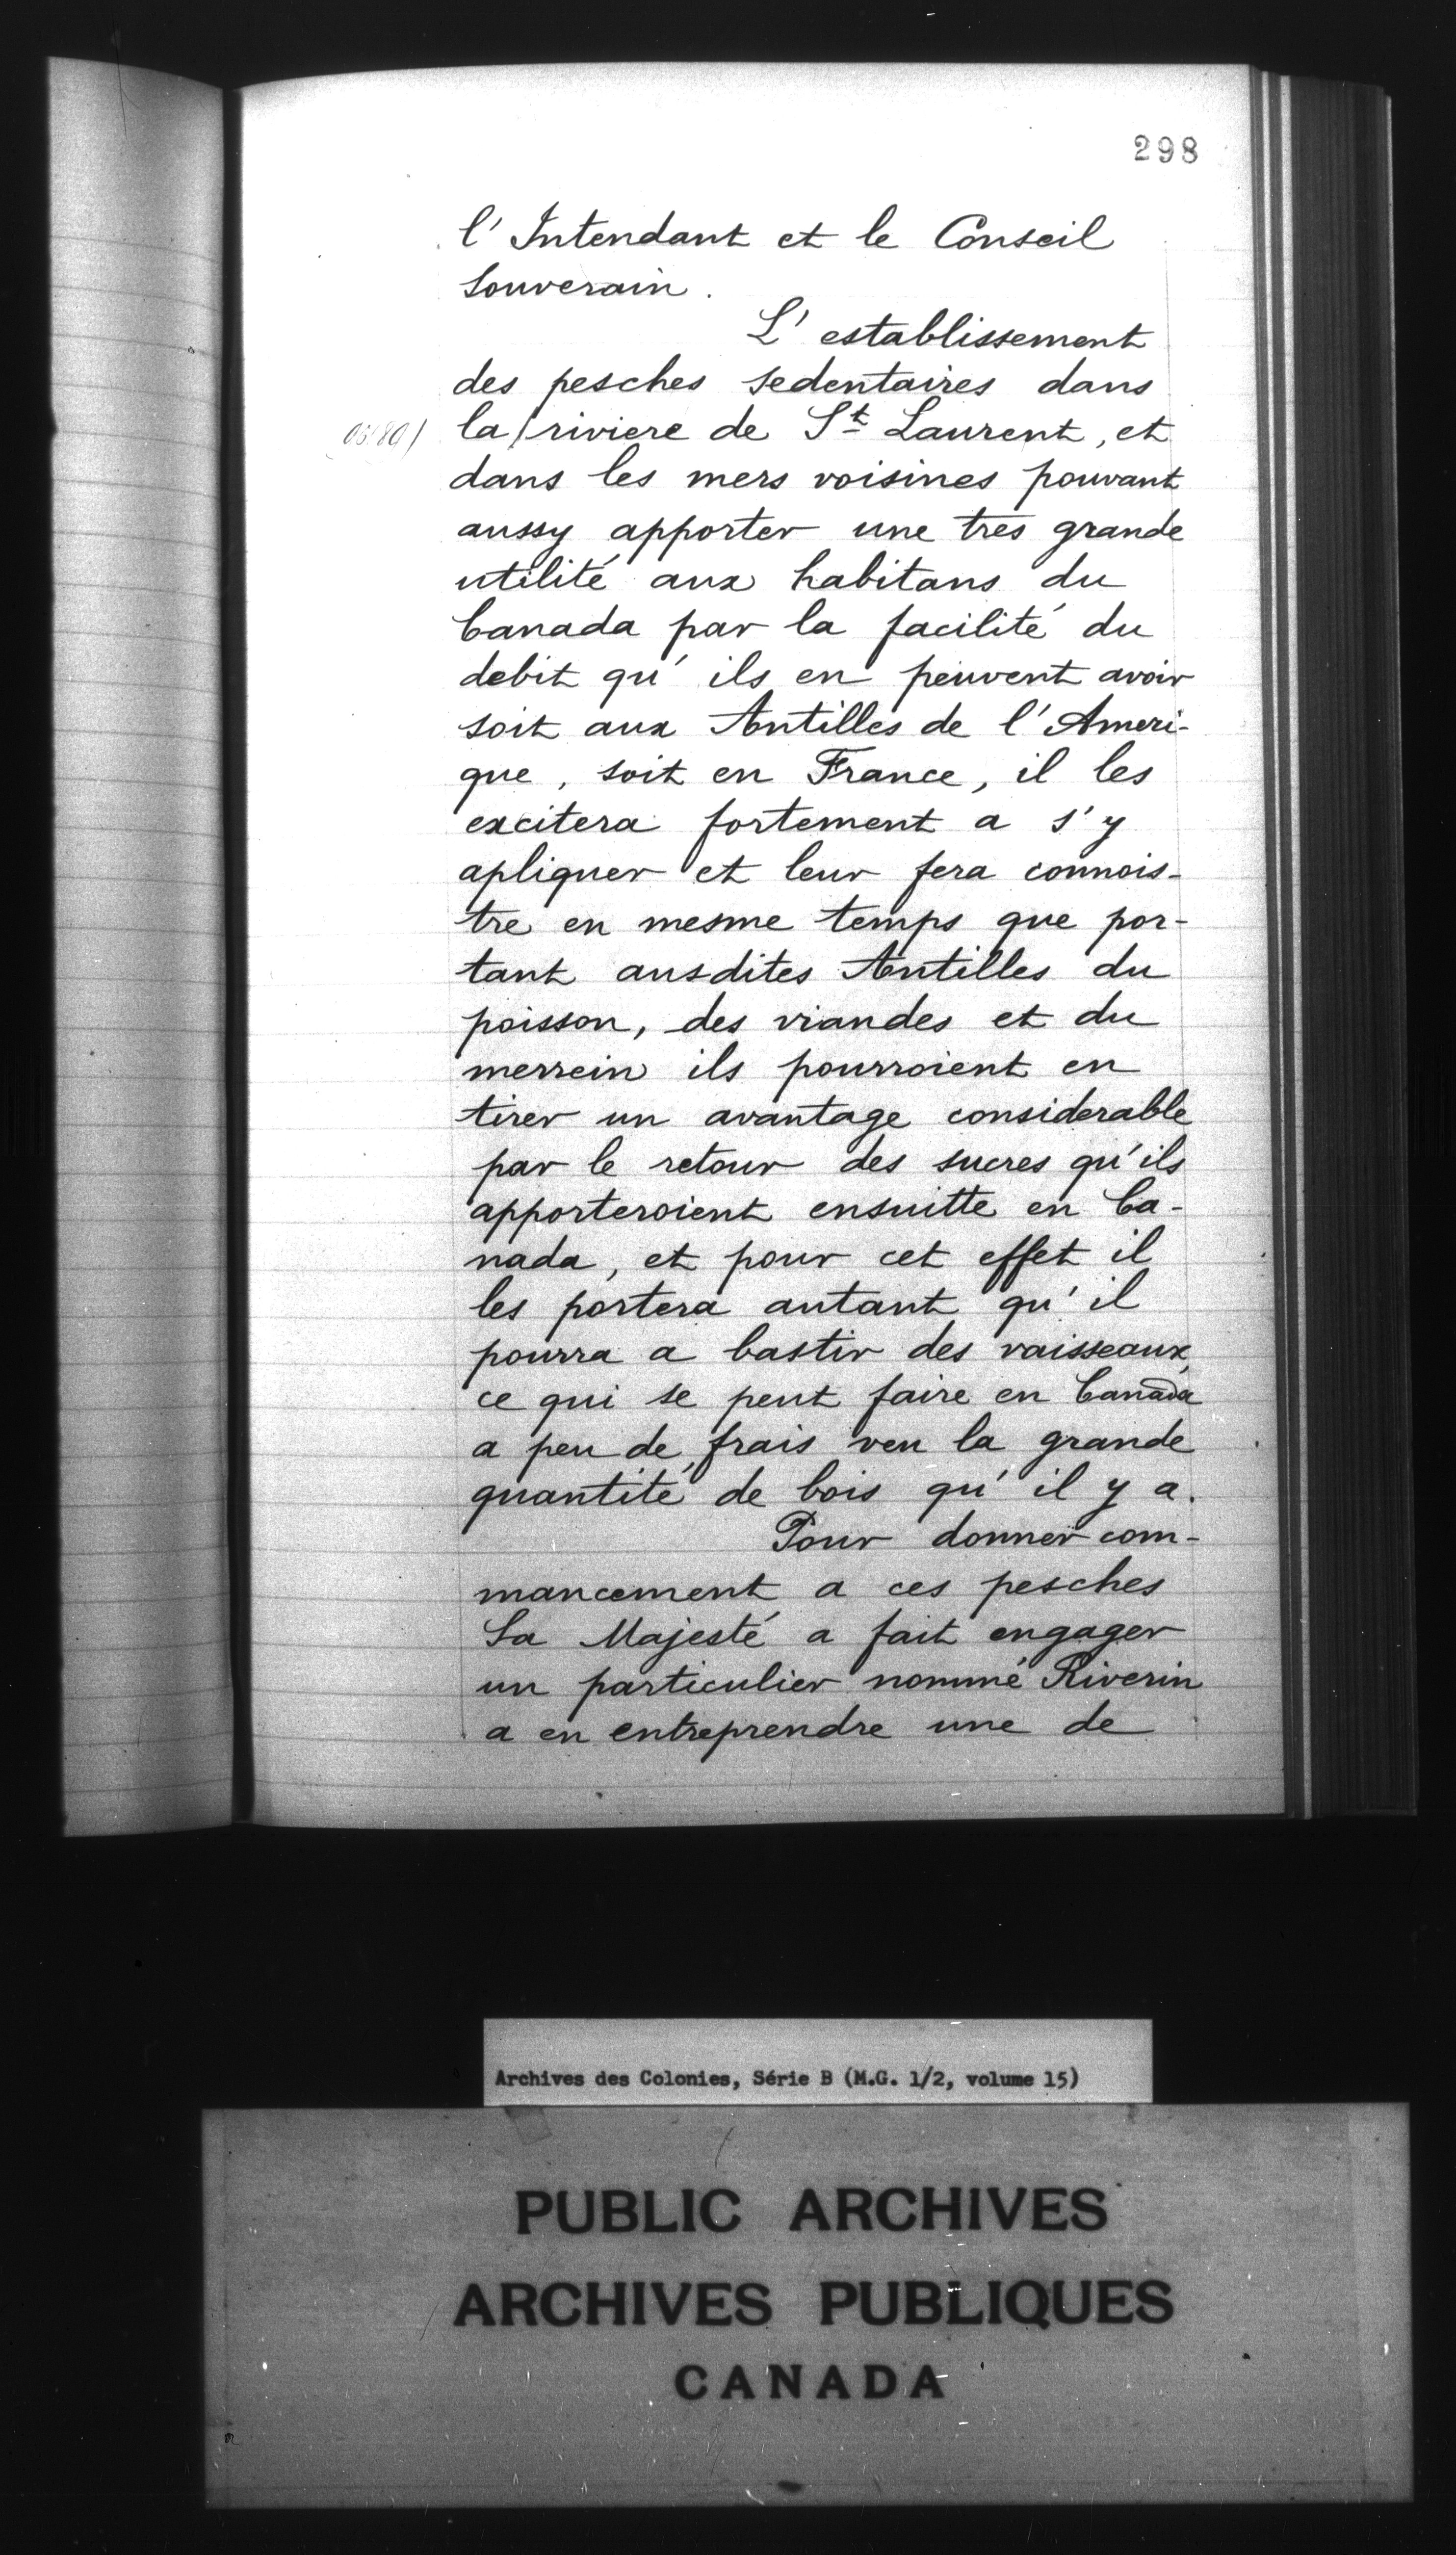 298
l' Intendant et le Conseil
Souverain.
L' establissement
des pesches sedentaires dans
la/riviere de St Laurent, et
dans les mers voisines pouvant
aussy apporter une tres grande
utilité aux habitans du
Canada par la facilité du
debit qu' ils en peuvent avoir
soit aux Antilles de l' Ameri-
que, soit en France, il les
excitera fortement a s' y
apliquer et leur fera connois-
tre en mesme temps que por-
tant ausdites Antilles du
poisson, des viandes et du
merrein ils pourroient en
tirer un avantage considerable
par le retour des sucres qu' ils
apporteroient ensuitte en Ca-
nada, et pour cet effet il
les portera autant qu' il
pourra a bastir des vaisseaux,
ce qui se peut faire en Canada
a peu de frais veu la grande
quantité de bois qu' il y a.
Pour donner com-
mancement a ces pesches
Sa Majesté a fait engager
un particulier nommé Riverin
a en entreprendre une de
Archives des Colonies, Série B (M.G. 1/2, volume 15)
PUBLIC ARCHIVES
ARCHIVES PUBLIQUES
CANADA